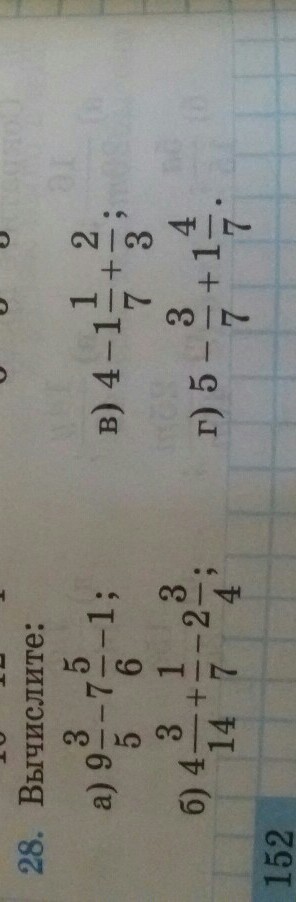 28. Вычислите:
а) 9 3/5 − 7 5/6 − 1; в) 4 − 1 1/7 + 2/3;
б) 4 3/14 + 1/7 − 2 3/4; г) 5 − 3/7 + 1 4/7.
152